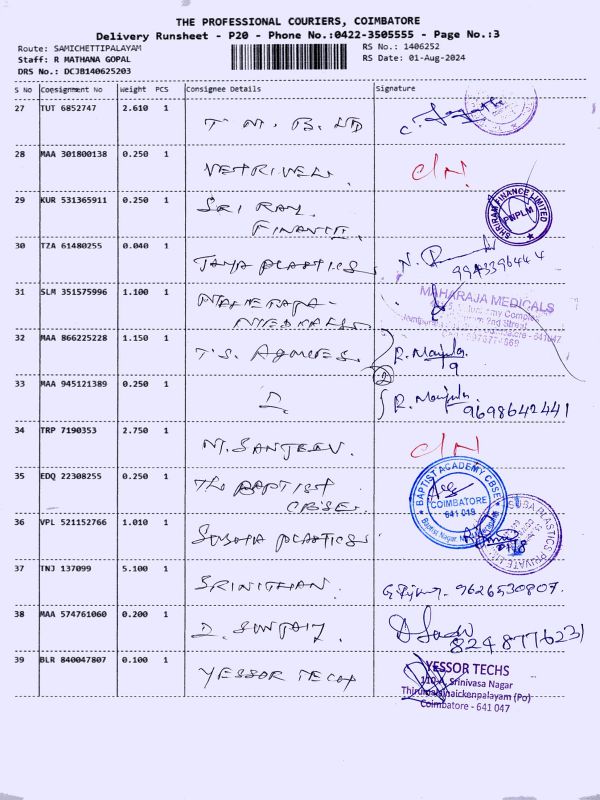 THE PROFESSIONAL COURIERS, COIMBATORE
Delivery Runsheet - P20 - Phone No.:0422-3505555 - Page No.:3
Route: SAMICHETTIPALAYAM RS No.: 1406252
Staff: R MATHANA GOPAL RS Date: 01-Aug-2024
DRS No.: DCJB140625203
S No Consignment No Weight PCS Consignee Details Signature
27 TUT 6852747 2.610 1
T M. B. LTD
28 MAA 301800138 0.250 1
VETRIVEL C/N
29 KUR 531365911 0.250 1
SRI RAM
FINANCE
SHRIRAM FINANCE LIMITED
30 TZA 61480255 0.040 1
PLASTICS
31 SLM 351575996 1.100 1
MAHARAJA
MEDICALS
MAHARAJA MEDICALS
2nd Street
32 MAA 866225228 1.150 1
T.S. R. Manjula
33 MAA 945121389 0.250 1
R. Manjula
9698642441
34 TRP 7190353 2.750 1
M. SANJEEV. C/N
35 EDQ 22308255 0.250 1
The BAPTIST
CBSE.
BAPTIST ACADEMY CBSE
COIMBATORE
641 018
36 VPL 521152766 1.010 1
SUBHA PLASTICS
PLASTICS PRIVATE
37 TNJ 137099 5.100 1
SRINITHAN. 9626530807.
38 MAA 574761060 0.200 1
8248776231
39 BLR 840047807 0.100 1
YESSOR TECH
YESSOR TECHS
110-A, Srinivasa Nagar
Thirumalainaickenpalayam (Po)
Coimbatore - 641 047